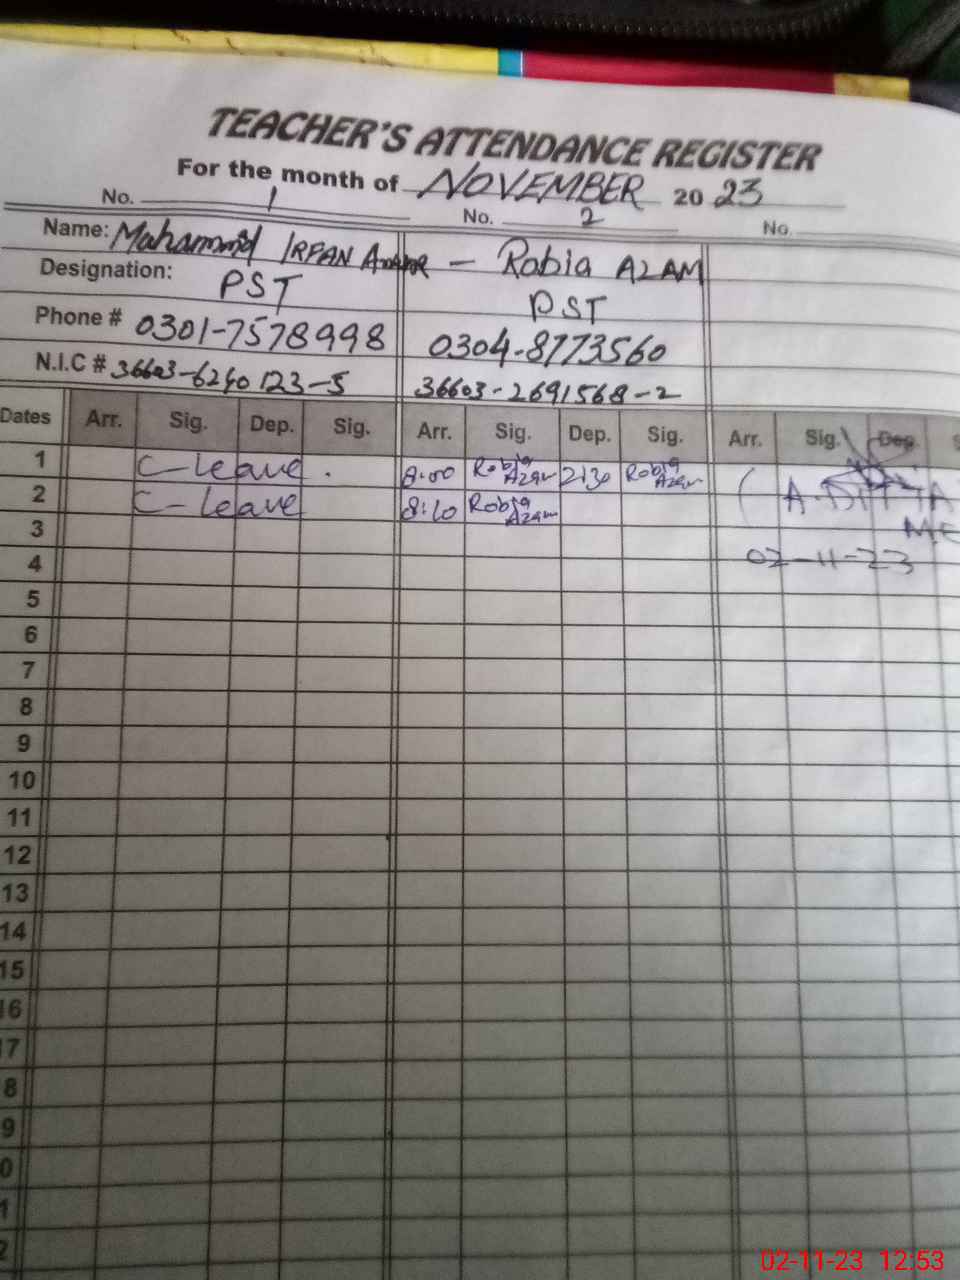 TEACHER'S ATTENDANCE REGISTER
For the month of NOVEMBER 20 23
No. 1 No. 2 No.
Name: Mahammid IRFAN - Robia AZAM
Designation: PST PST
Phone # 0301-7578998 0304-8773560
N.I.C # 36603-6240123-5 36603-2691568-2
Dates Arr. Sig. Dep. Sig. Arr. Sig. Dep. Sig. Arr. Sig. Dep. S
1 C-leave . 8:00 Robia Azam 2:30 Robia Azam
2 C-leave 8:10 Robia Azam
3
4 02-11-23
5
6
7
8
9
10
11
12
13
14
15
16
7
8
9
0
1
2
02-11-23 12:53